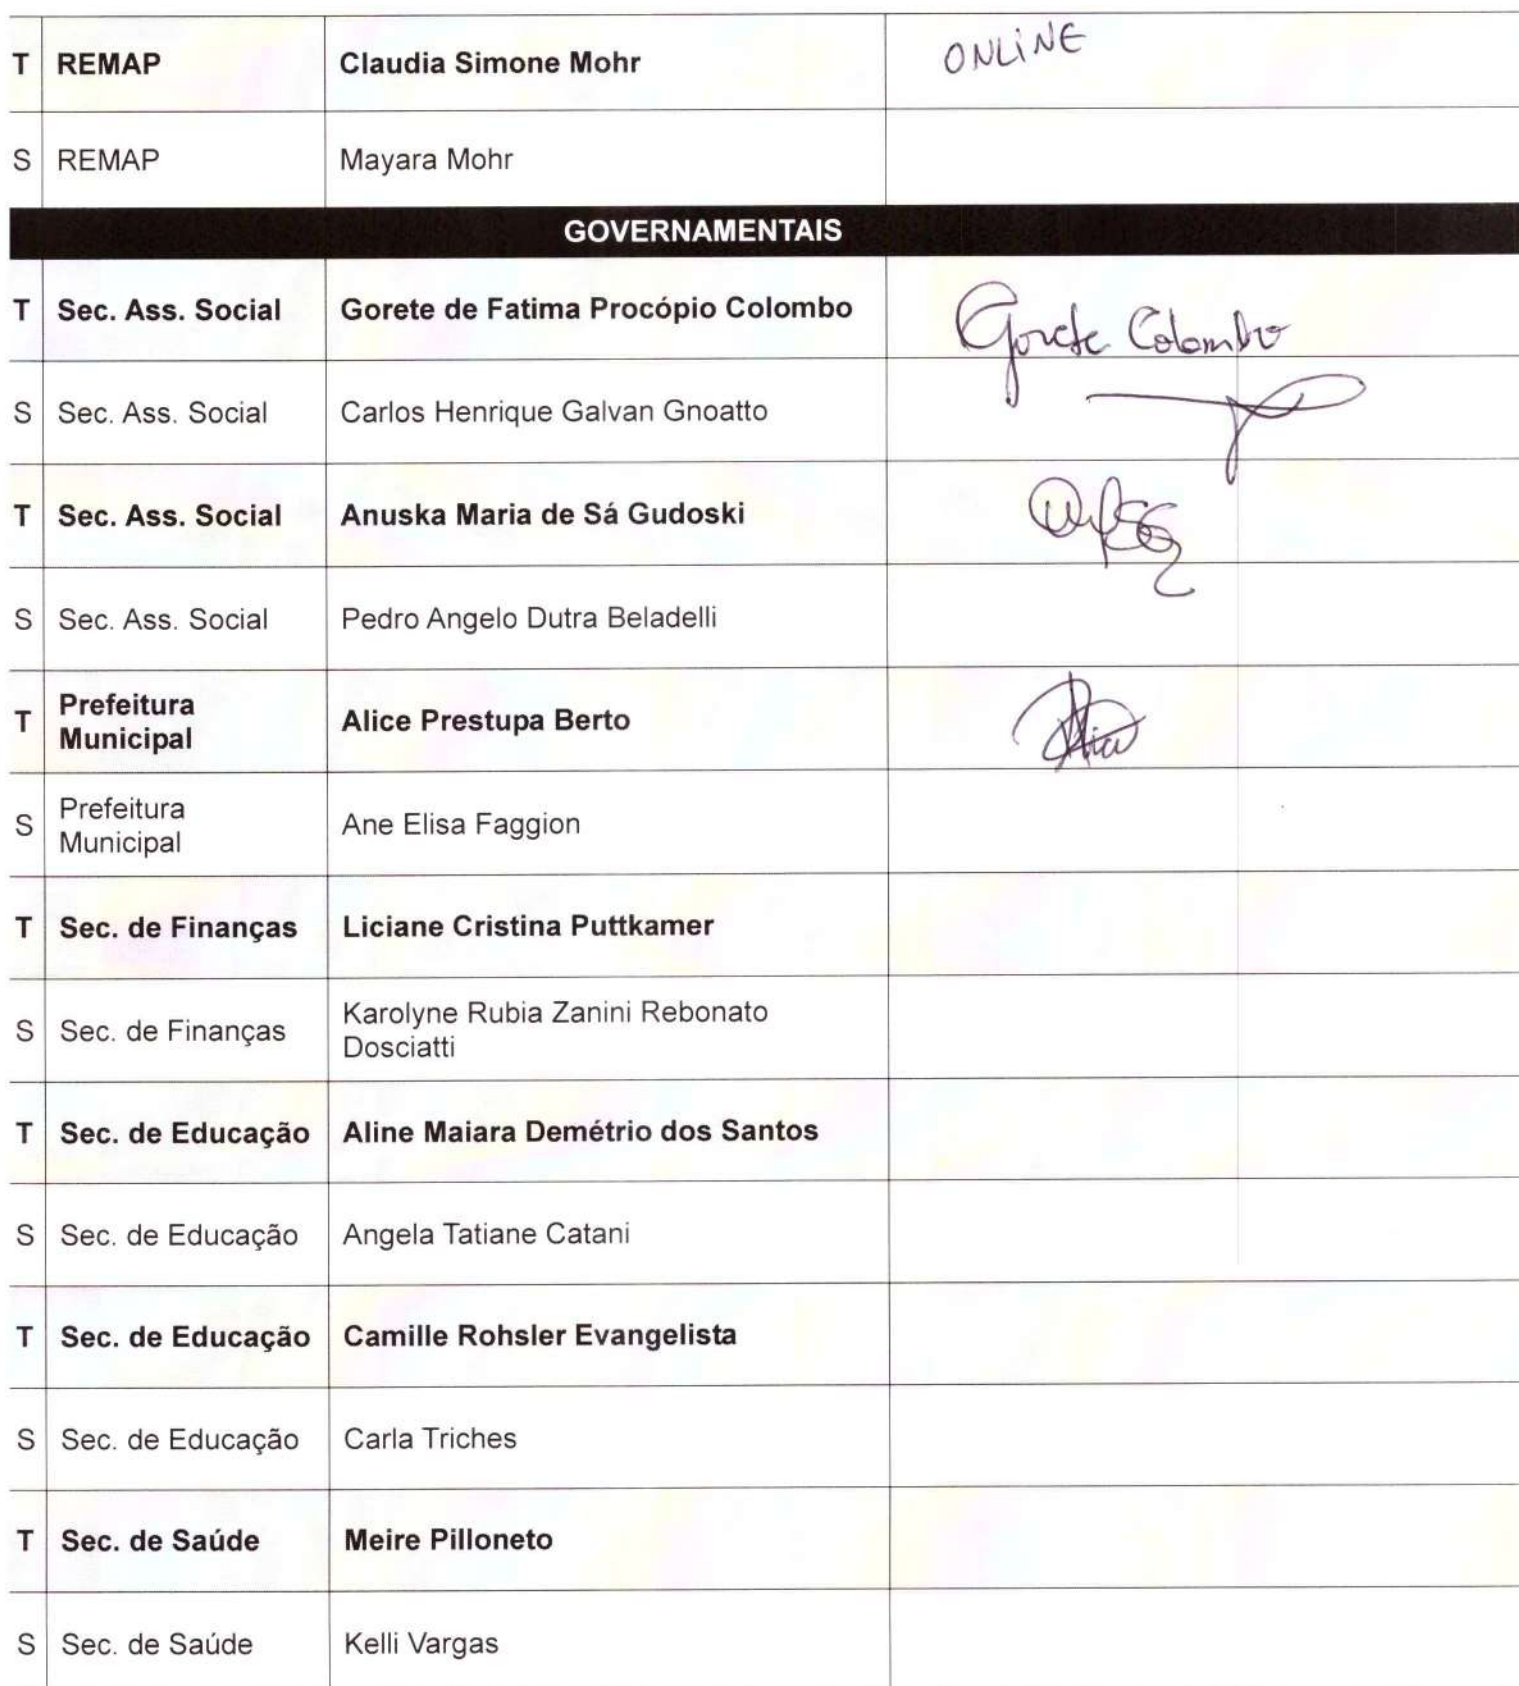 T REMAP Claudia Simone Mohr ONLINE
S REMAP Mayara Mohr
GOVERNAMENTAIS
T Sec. Ass. Social Gorete de Fatima Procópio Colombo Gorete Colombo
S Sec. Ass. Social Carlos Henrique Galvan Gnoatto
T Sec. Ass. Social Anuska Maria de Sá Gudoski
S Sec. Ass. Social Pedro Angelo Dutra Beladelli
T Prefeitura
Municipal Alice Prestupa Berto Alice
S Prefeitura
Municipal Ane Elisa Faggion
T Sec. de Finanças Liciane Cristina Puttkamer
S Sec. de Finanças Karolyne Rubia Zanini Rebonato
Dosciatti
T Sec. de Educação Aline Maiara Demétrio dos Santos
S Sec. de Educação Angela Tatiane Catani
T Sec. de Educação Camille Rohsler Evangelista
S Sec. de Educação Carla Triches
T Sec. de Saúde Meire Pilloneto
S Sec. de Saúde Kelli Vargas